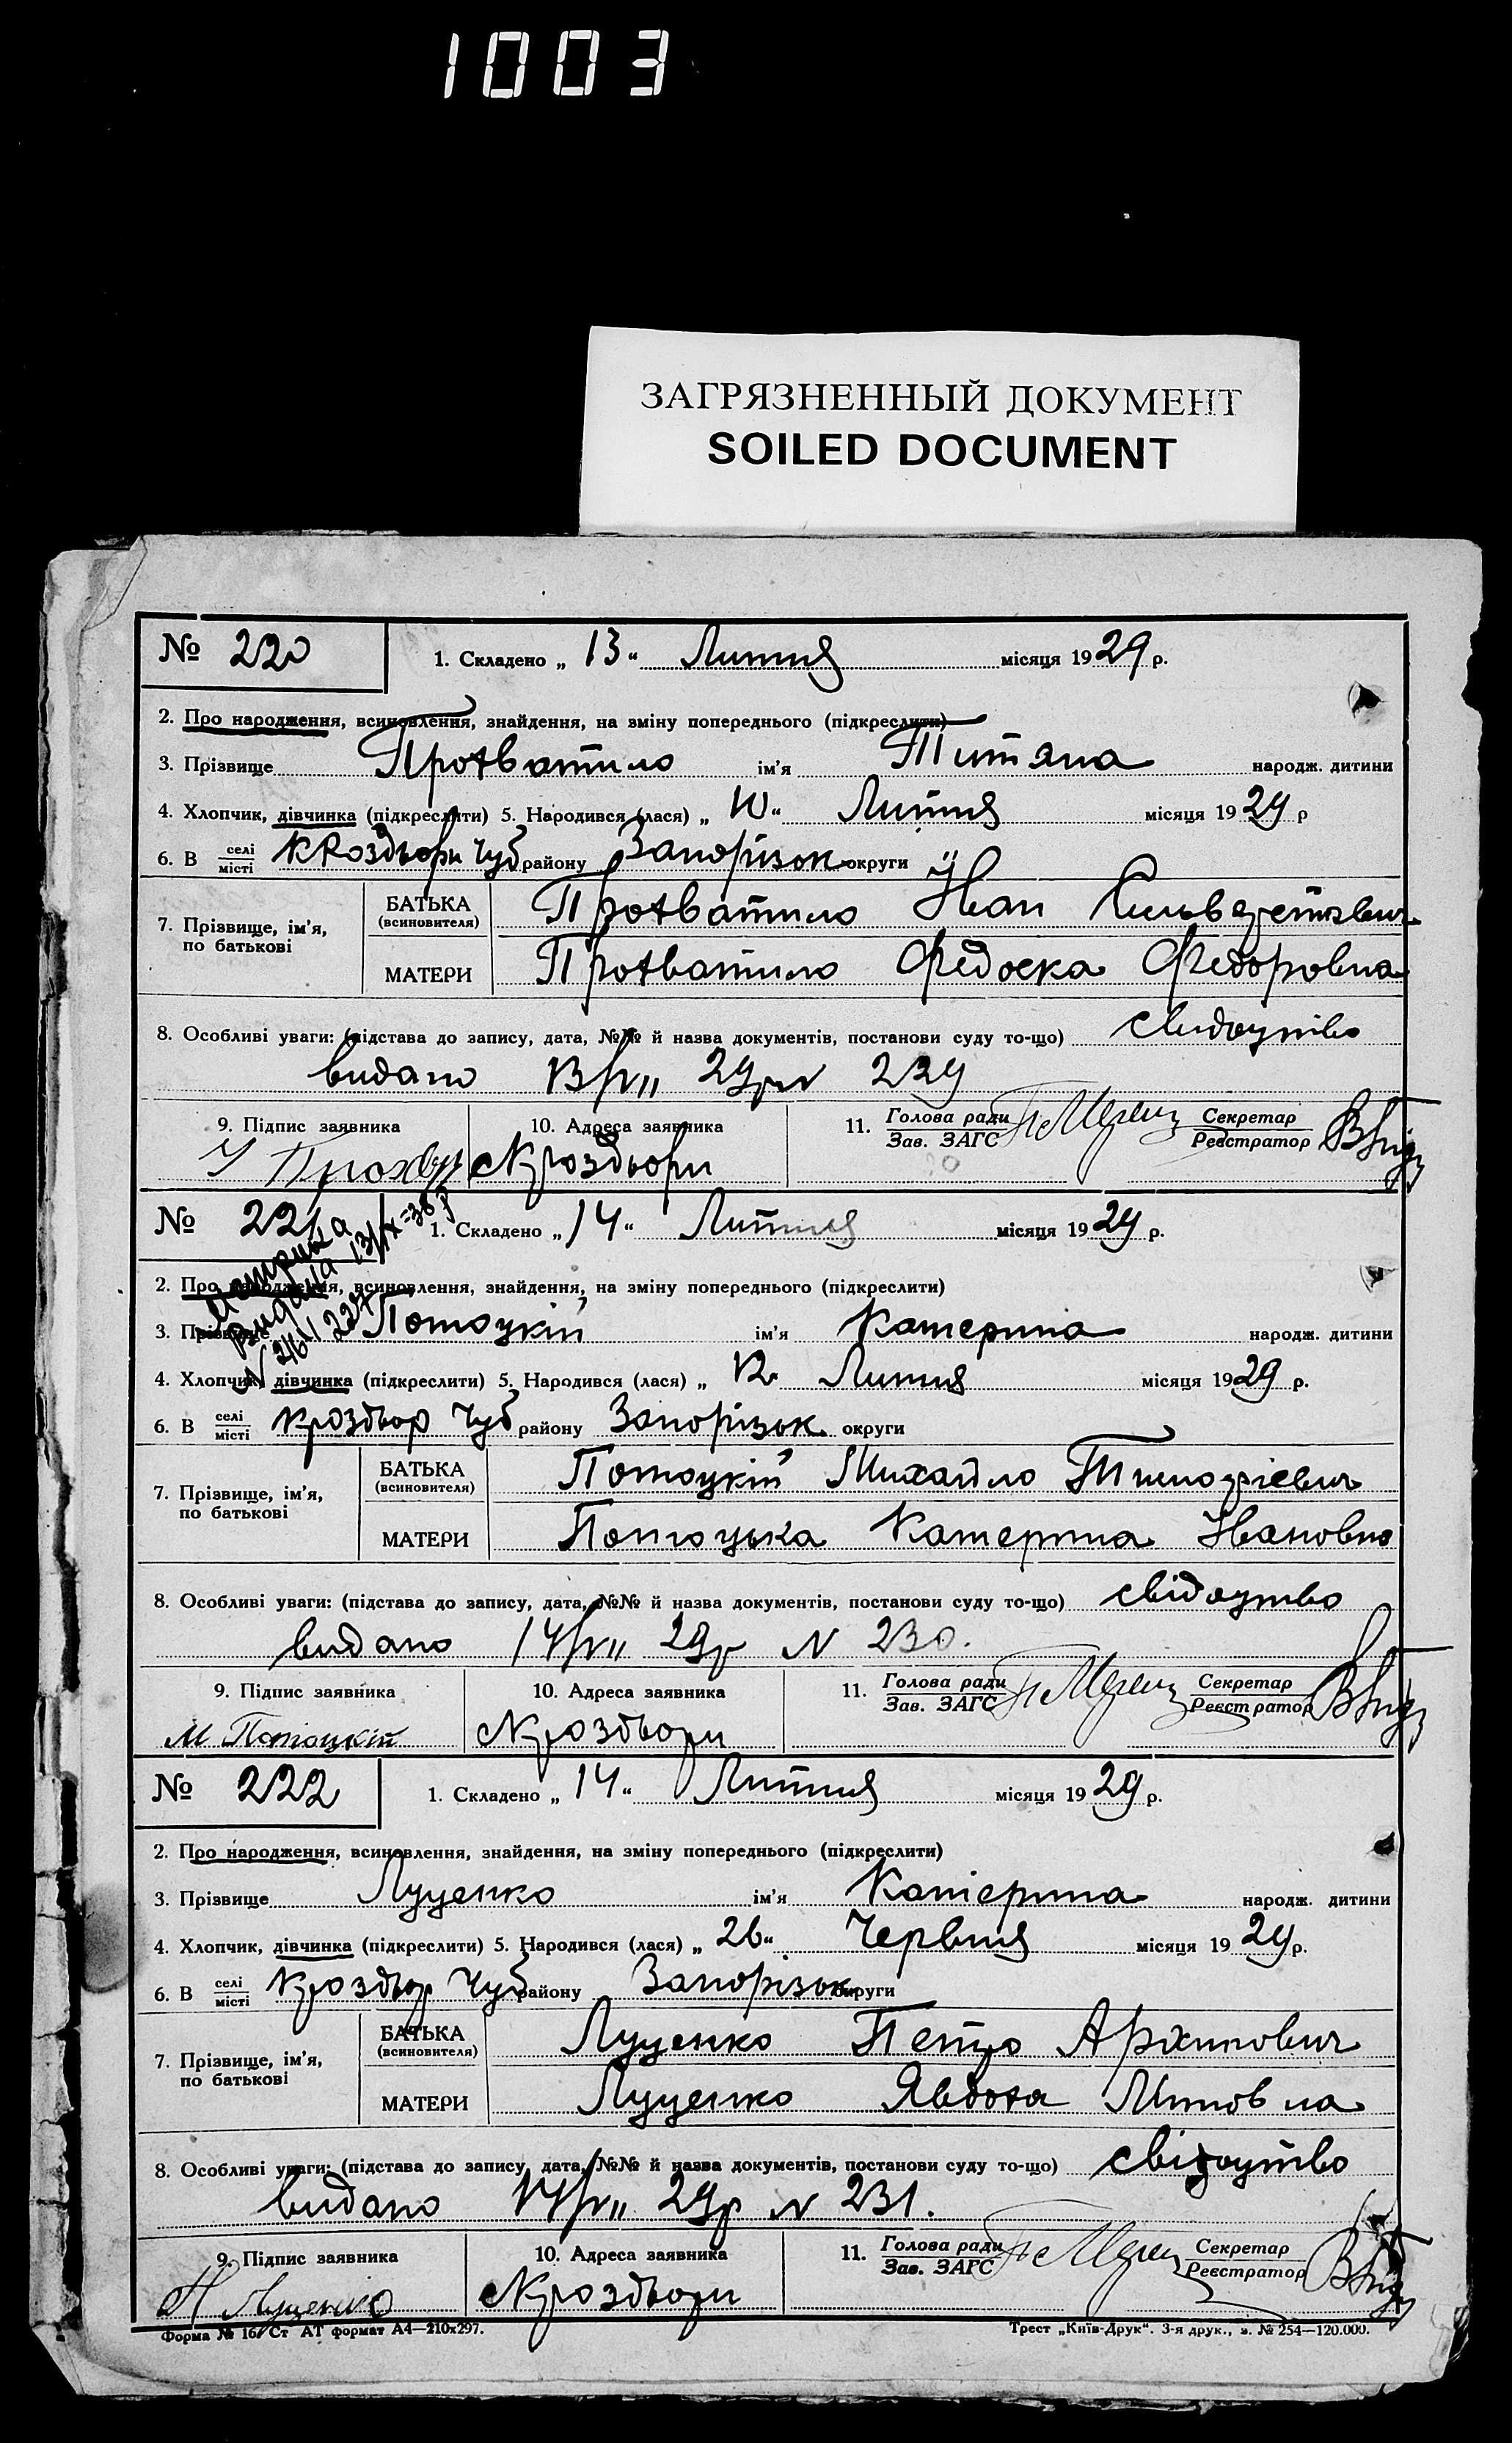 1003
ЗАГРЯЗНЕННЫЙ ДОКУМЕНТ
SOILED DOCUMENT
№ 220 1. Складено „ 13 “ Липня місяця 1929 р.
2. Про народження, всиновлення, знайдення, на зміну попереднього (підкреслити)
3. Прізвище Прохватило ім'я Титяна народж. дитини
4. Хлопчик, дівчинка (підкреслити) 5. Народився (лася) „ 10 “ Липня місяця 1929 р
6. В селі місті Чуб району Запорізьк округи
7. Прізвище, ім'я, по батькові
БАТЬКА (всиновителя) Прохватило Иван
МАТЕРИ Прохватило Федоска Федоровна
8. Особливі уваги: (підстава до запису, дата, №№ й назва документів, постанови суду то-що) свидоцтво
видано 13/VII 29р N 229
9. Підпис заявника 10. Адреса заявника 11. Голова ради Зав. ЗАГС Секретар Реєстратор
Кроздвори
№ 221 1. Складено „ 14 “ Липня місяця 1929 р.
2. Про народження, всиновлення, знайдення, на зміну попереднього (підкреслити)
3. Прізвище Потоцкій ім'я Катерина народж. дитини
4. Хлопчик, дівчинка (підкреслити) 5. Народився (лася) „ 12 Липня місяця 1929 р.
6. В селі місті Кроздвор Чуб району Запорізьк округи
7. Прізвище, ім'я, по батькові
БАТЬКА (всиновителя) Потоцкій Михайло
МАТЕРИ Потоцька Катерина Ивановна
8. Особливі уваги: (підстава до запису, дата, №№ й назва документів, постанови суду то-що) свідоцтво
видано 14/VII 29р N 230.
9. Підпис заявника 10. Адреса заявника 11. Голова ради Зав. ЗАГС Секретар Реєстратор
М Потоцкій Кроздвори
№ 222 1. Складено „ 14 “ Липня місяця 1929 р.
2. Про народження, всиновлення, знайдення, на зміну попереднього (підкреслити)
3. Прізвище Луценко ім'я Катерина народж. дитини
4. Хлопчик, дівчинка (підкреслити) 5. Народився (лася) „ 26 “ Червня місяця 1929 р.
6. В селі місті Кроздвор Чуб району Запорізьк округи
7. Прізвище, ім'я, по батькові
БАТЬКА (всиновителя) Луценко Петро Архипович
МАТЕРИ Луценко Явдоха
8. Особливі уваги: (підстава до запису, дата, №№ й назва документів, постанови суду то-що) свідоцтво
видано 14/VII 29р N 231.
9. Підпис заявника 10. Адреса заявника 11. Голова ради Зав. ЗАГС Секретар Реєстратор
Луценко Кроздвори
Форма № 16. Ст АТ формат А4—210х297. Трест „Київ-Друк“. 3-я друк., з. № 254—120.000.